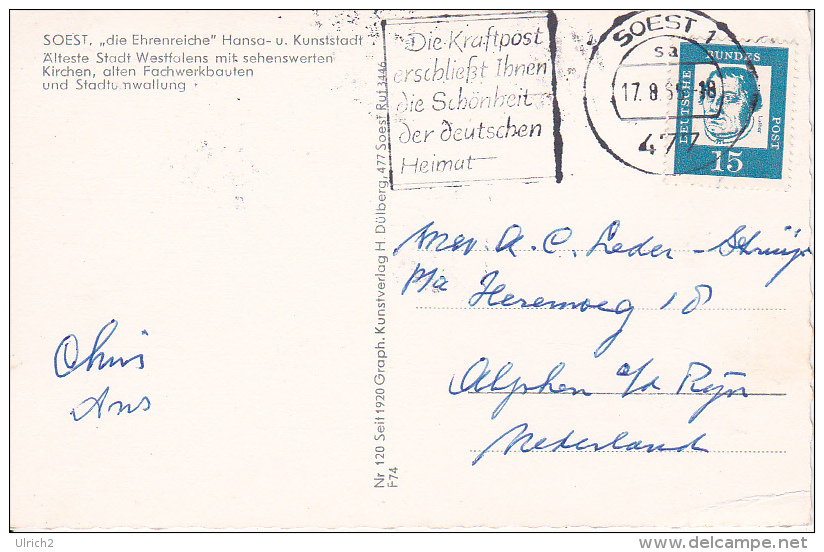 SOEST, „die Ehrenreiche" Hansa- u. Kunststadt
Älteste Stadt Westfalens mit sehenswerten
Kirchen, alten Fachwerkbauten
und Stadtumwallung
Die Kraftpost
erschließt Ihnen
die Schönheit
der deutschen
Heimat
SOEST 1
sa
17. 8. 6
-18
477
DEUTSCHE BUNDES POST
Luther
15
Nr. 120 Seit 1920 Graph. Kunstverlag H. Dülberg, 477 Soest Ruf 3446
F74
Mev. A. C. Leder-
p/a Herenweg 18
Alphen a/d Rijn
Nederland
Chris
Ans
© Ulrich2
delcampe.net